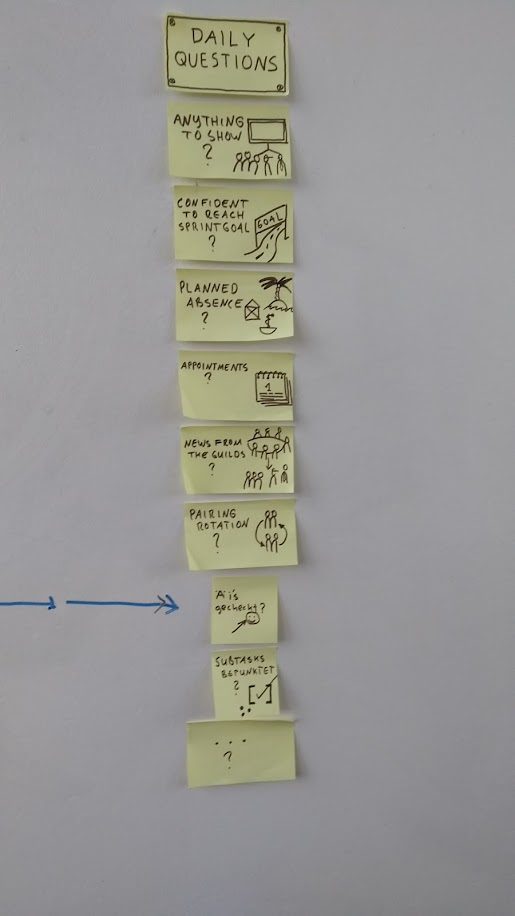 DAILY
QUESTIONS
ANYTHING
TO SHOW
?
CONFIDENT
TO REACH
SPRINTGOAL
?
GOAL
PLANNED
ABSENCE
?
APPOINTMENTS
?
1
NEWS FROM
THE GUILDS
?
PAIRING
ROTATION
?
gecheckt?
SUBTASKS
BEPUNKTET
?
...
?